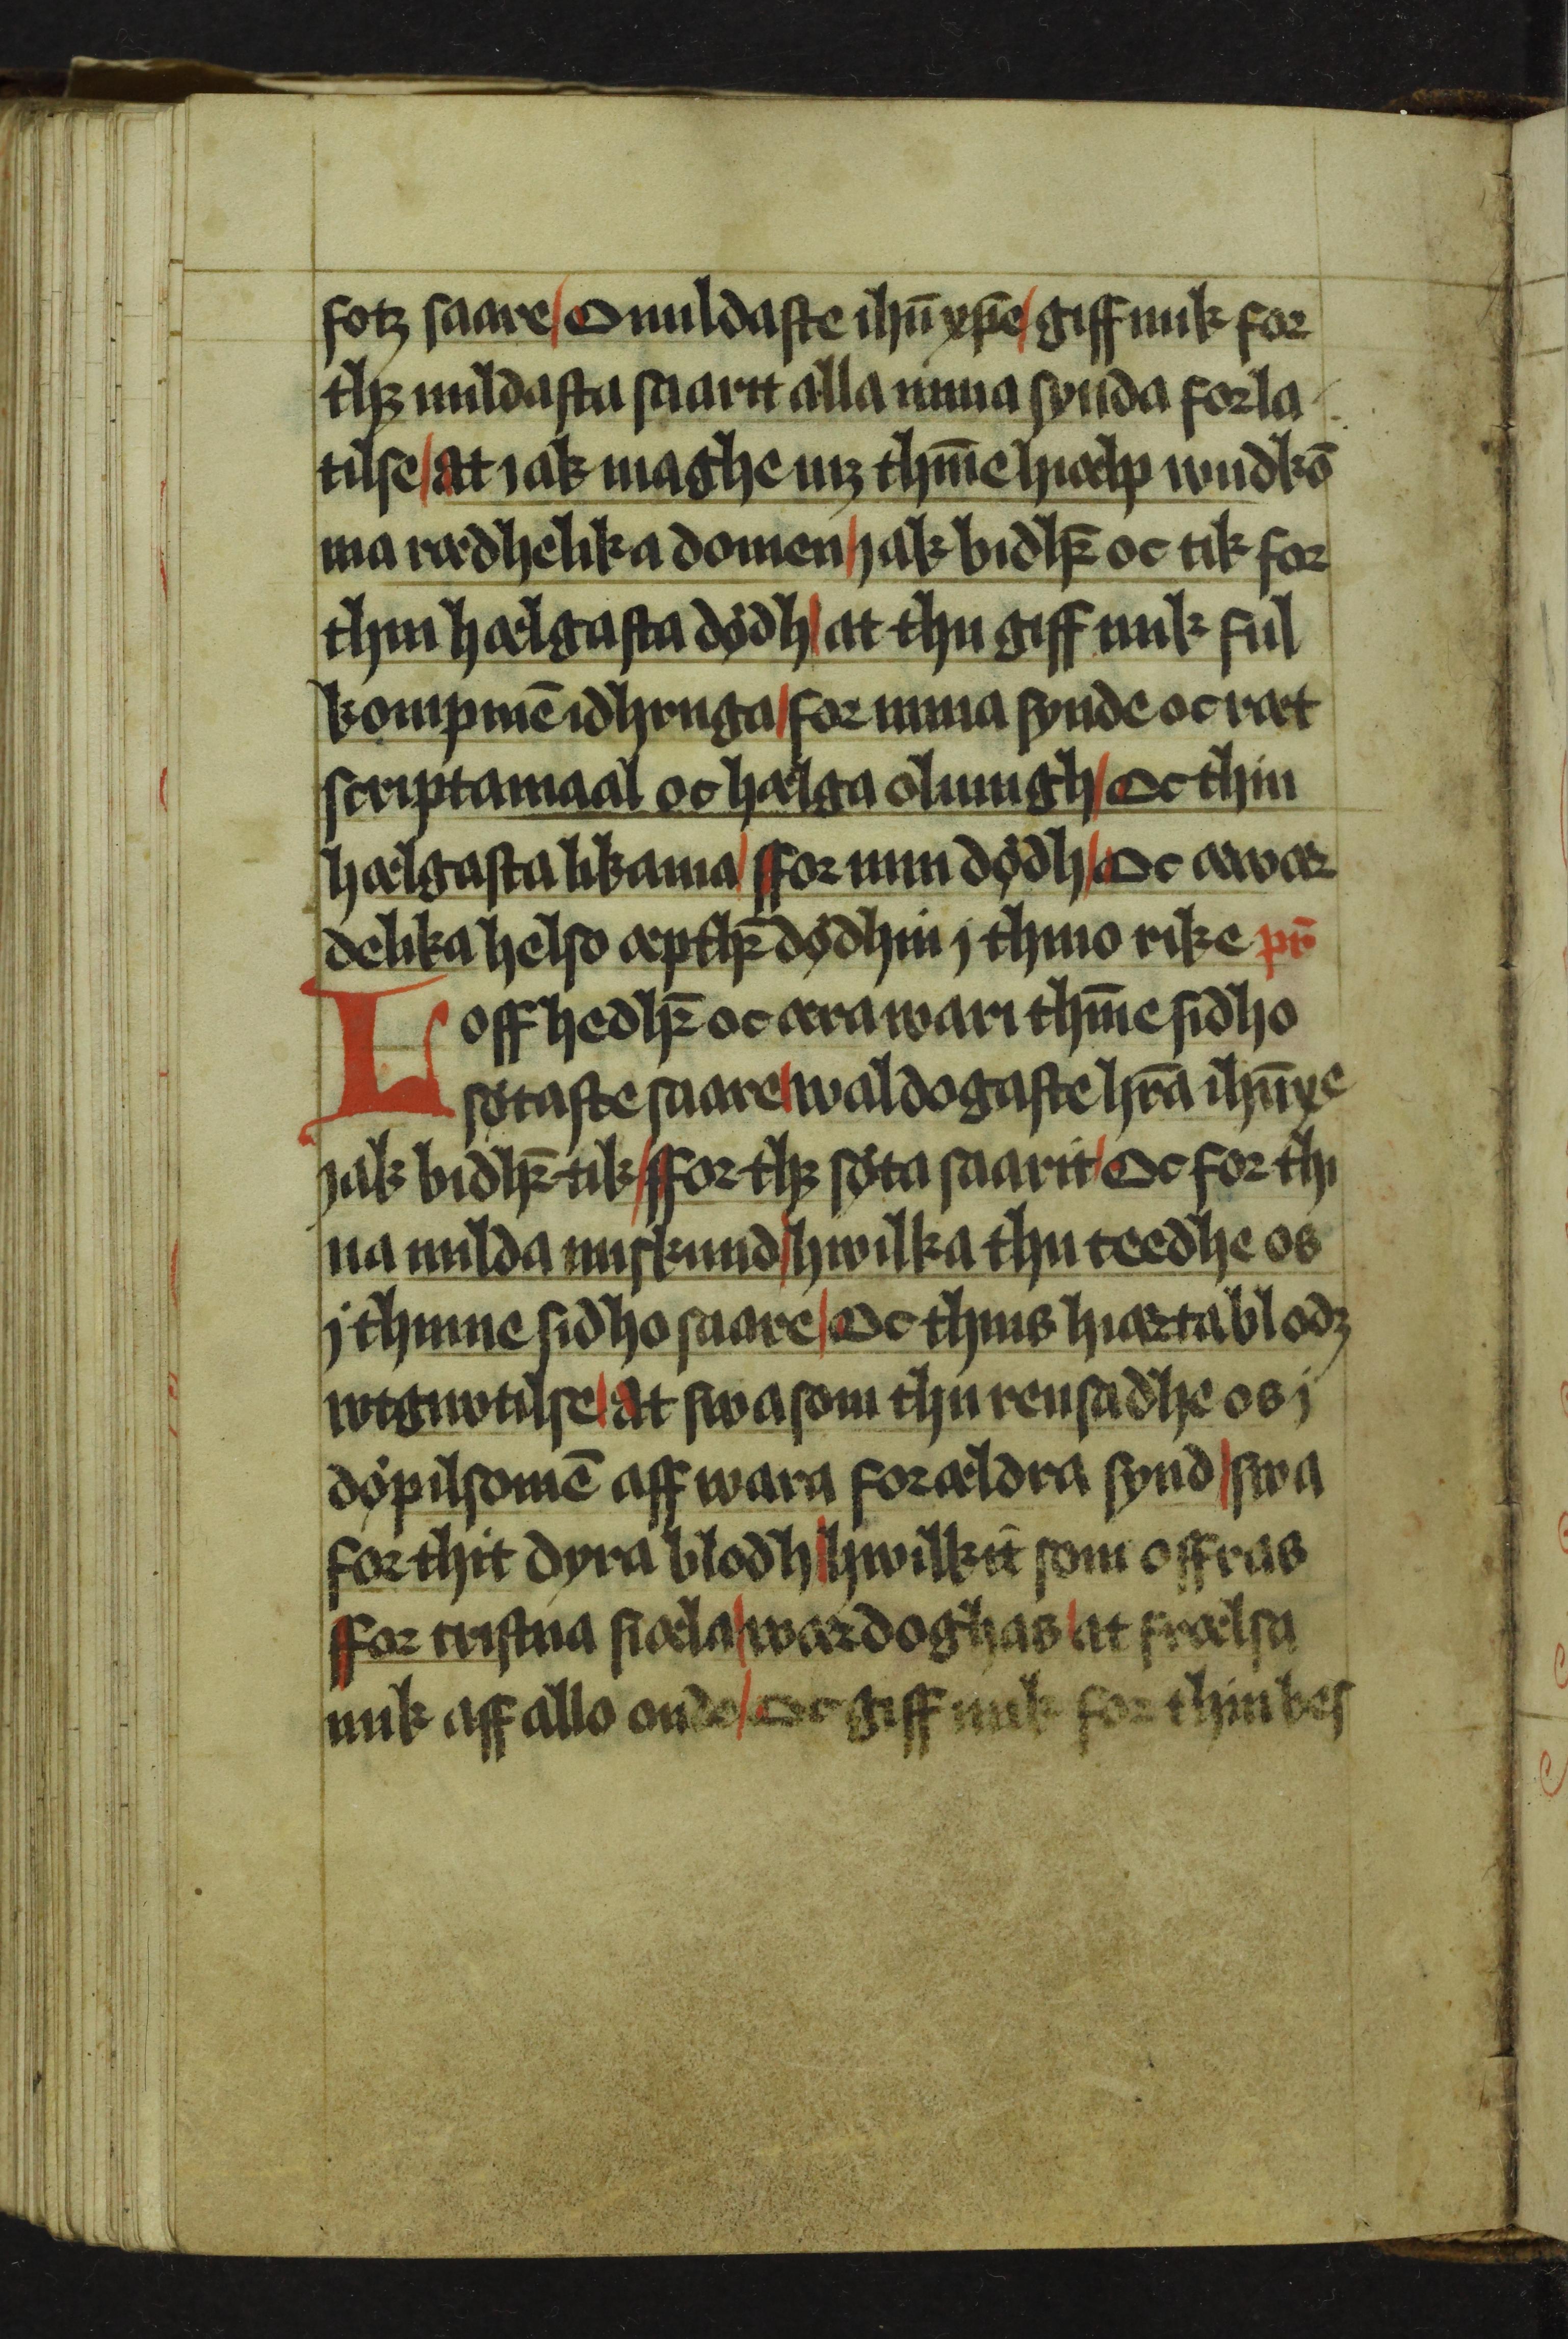 fotz saare / O mildaste ihū xp̄e / giff mik for
thz mildasta saarit alla mina synda forla
tilse / At iak maghe mz thīne hiælp wndkō
ma rædhelika domen / jak bidhr̄ oc tik for
thin hælgasta dödh / at thu giff mik ful
kompnē idhruga / for mina synde oc ræt
scriptamaal oc hælga olning̣h / Oc thin
hælgasta likama / ffor min dödh / Oc æwær
delika helso æpthr̄ dödhin j thino rike pr̄
Loff hedhr̄ oc æra wari thīne sidho
sötaste saare / waldogaste hr̄a ihū xe
jak bidhr̄ tik / ffor thz söta saarit / Oc for thi
na milda miskund / hwilka thu teedhe os
j thinne sidho saare / Oc thins hiærta blodz
wtgiwtilse / At swa som thu rensadhe os j
döpilsomē aff wara forældra synd / swa
for thit dyra blodh / hwilkit som offras
ffor cristna siæla / wærdoghas / at frælsa
mik aff allo ondo / Oc giff mik for thin bes